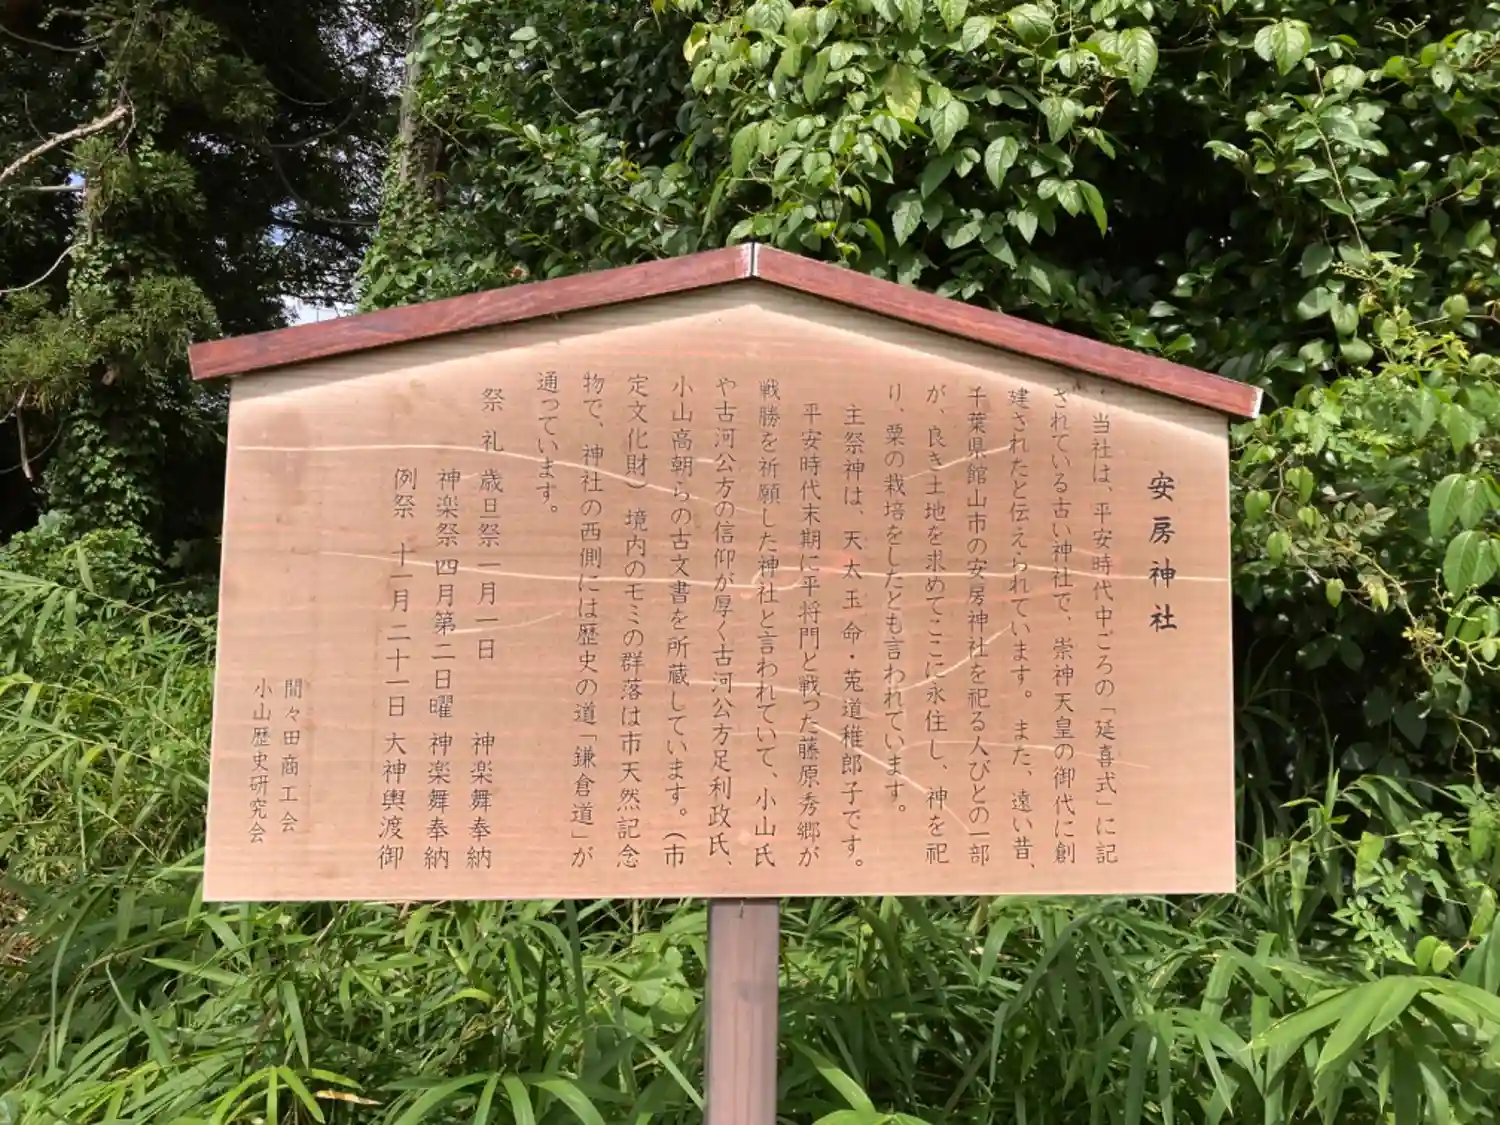 安房神社
当社は、平安時代中ごろの「延喜式」に記
されている古い神社で、崇神天皇の御代に創
建されたと伝えられています。また、遠い昔、
千葉県館山市の安房神社を祀る人びとの一部
が、良き土地を求めてここに永住し、神を祀
り、粟の栽培をしたとも言われています。
主祭神は、天太玉命・莵道稚郎子です。
平安時代末期に平将門と戦った藤原秀郷が
戦勝を祈願した神社と言われていて、小山氏
や古河公方の信仰が厚く古河公方足利政氏、
小山高朝らの古文書を所蔵しています。(市
定文化財) 境内のモミの群落は市天然記念
物で、神社の西側には歴史の道「鎌倉道」が
通っています。
祭礼 歳旦祭 一月一日 神楽舞奉納
神楽祭 四月第二日曜 神楽舞奉納
例祭 十一月二十一日 大神輿渡御
間々田商工会
小山歴史研究会